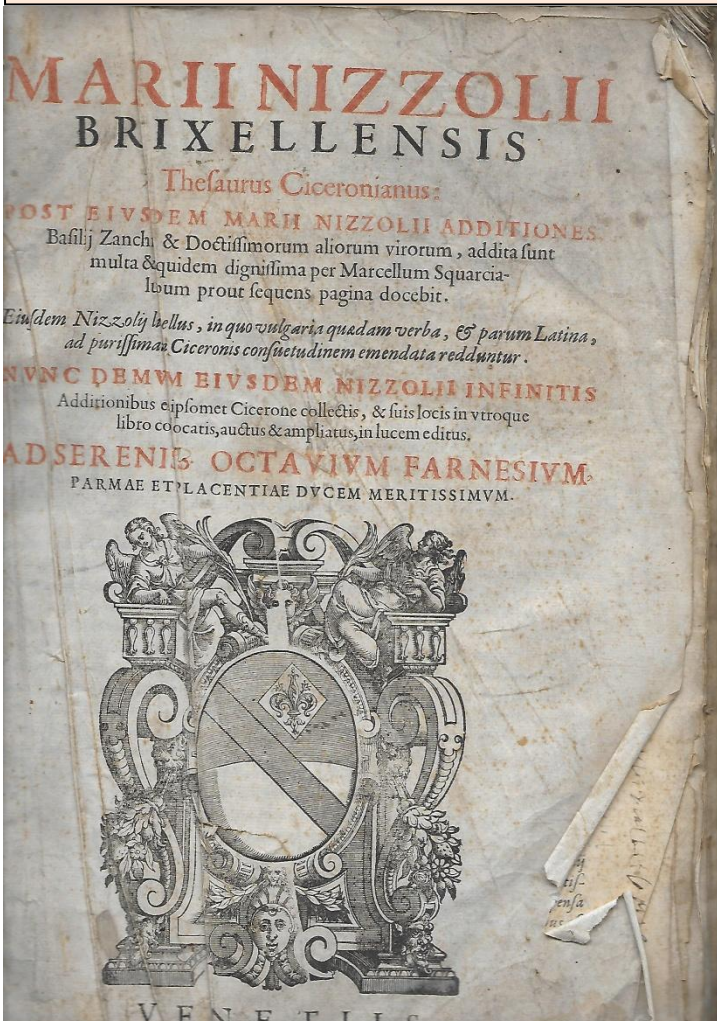 MARII NIZZOLII
BRIXELLENSIS
Theſaurus Ciceronianus:
POST EIVSDEM MARII NIZZOLII ADDITIONES
Baſilij Zanchi & Doctiſſimorum aliorum virorum, addita ſunt
multa & quidem digniſſima per Marcellum Squarcia-
lupum prout ſequens pagina docebit.
Eiuſdem Nizzolij lellus, in quo vulgaria quædam verba, & parum Latina,
ad puriſſimam Ciceronis conſuetudinem emendata redduntur.
NVNC DEMVM EIVSDEM NIZZOLII INFINITIS
Additionibus e ipſomet Cicerone collectis, & ſuis locis in vtroque
libro coocatis, auctus & ampliatus, in lucem editus.
AD SERENISS. OCTAVIVM FARNESIVM
PARMAE ET PLACENTIAE DVCEM MERITISSIMVM.
tiſ-
penſa
VENETIIS